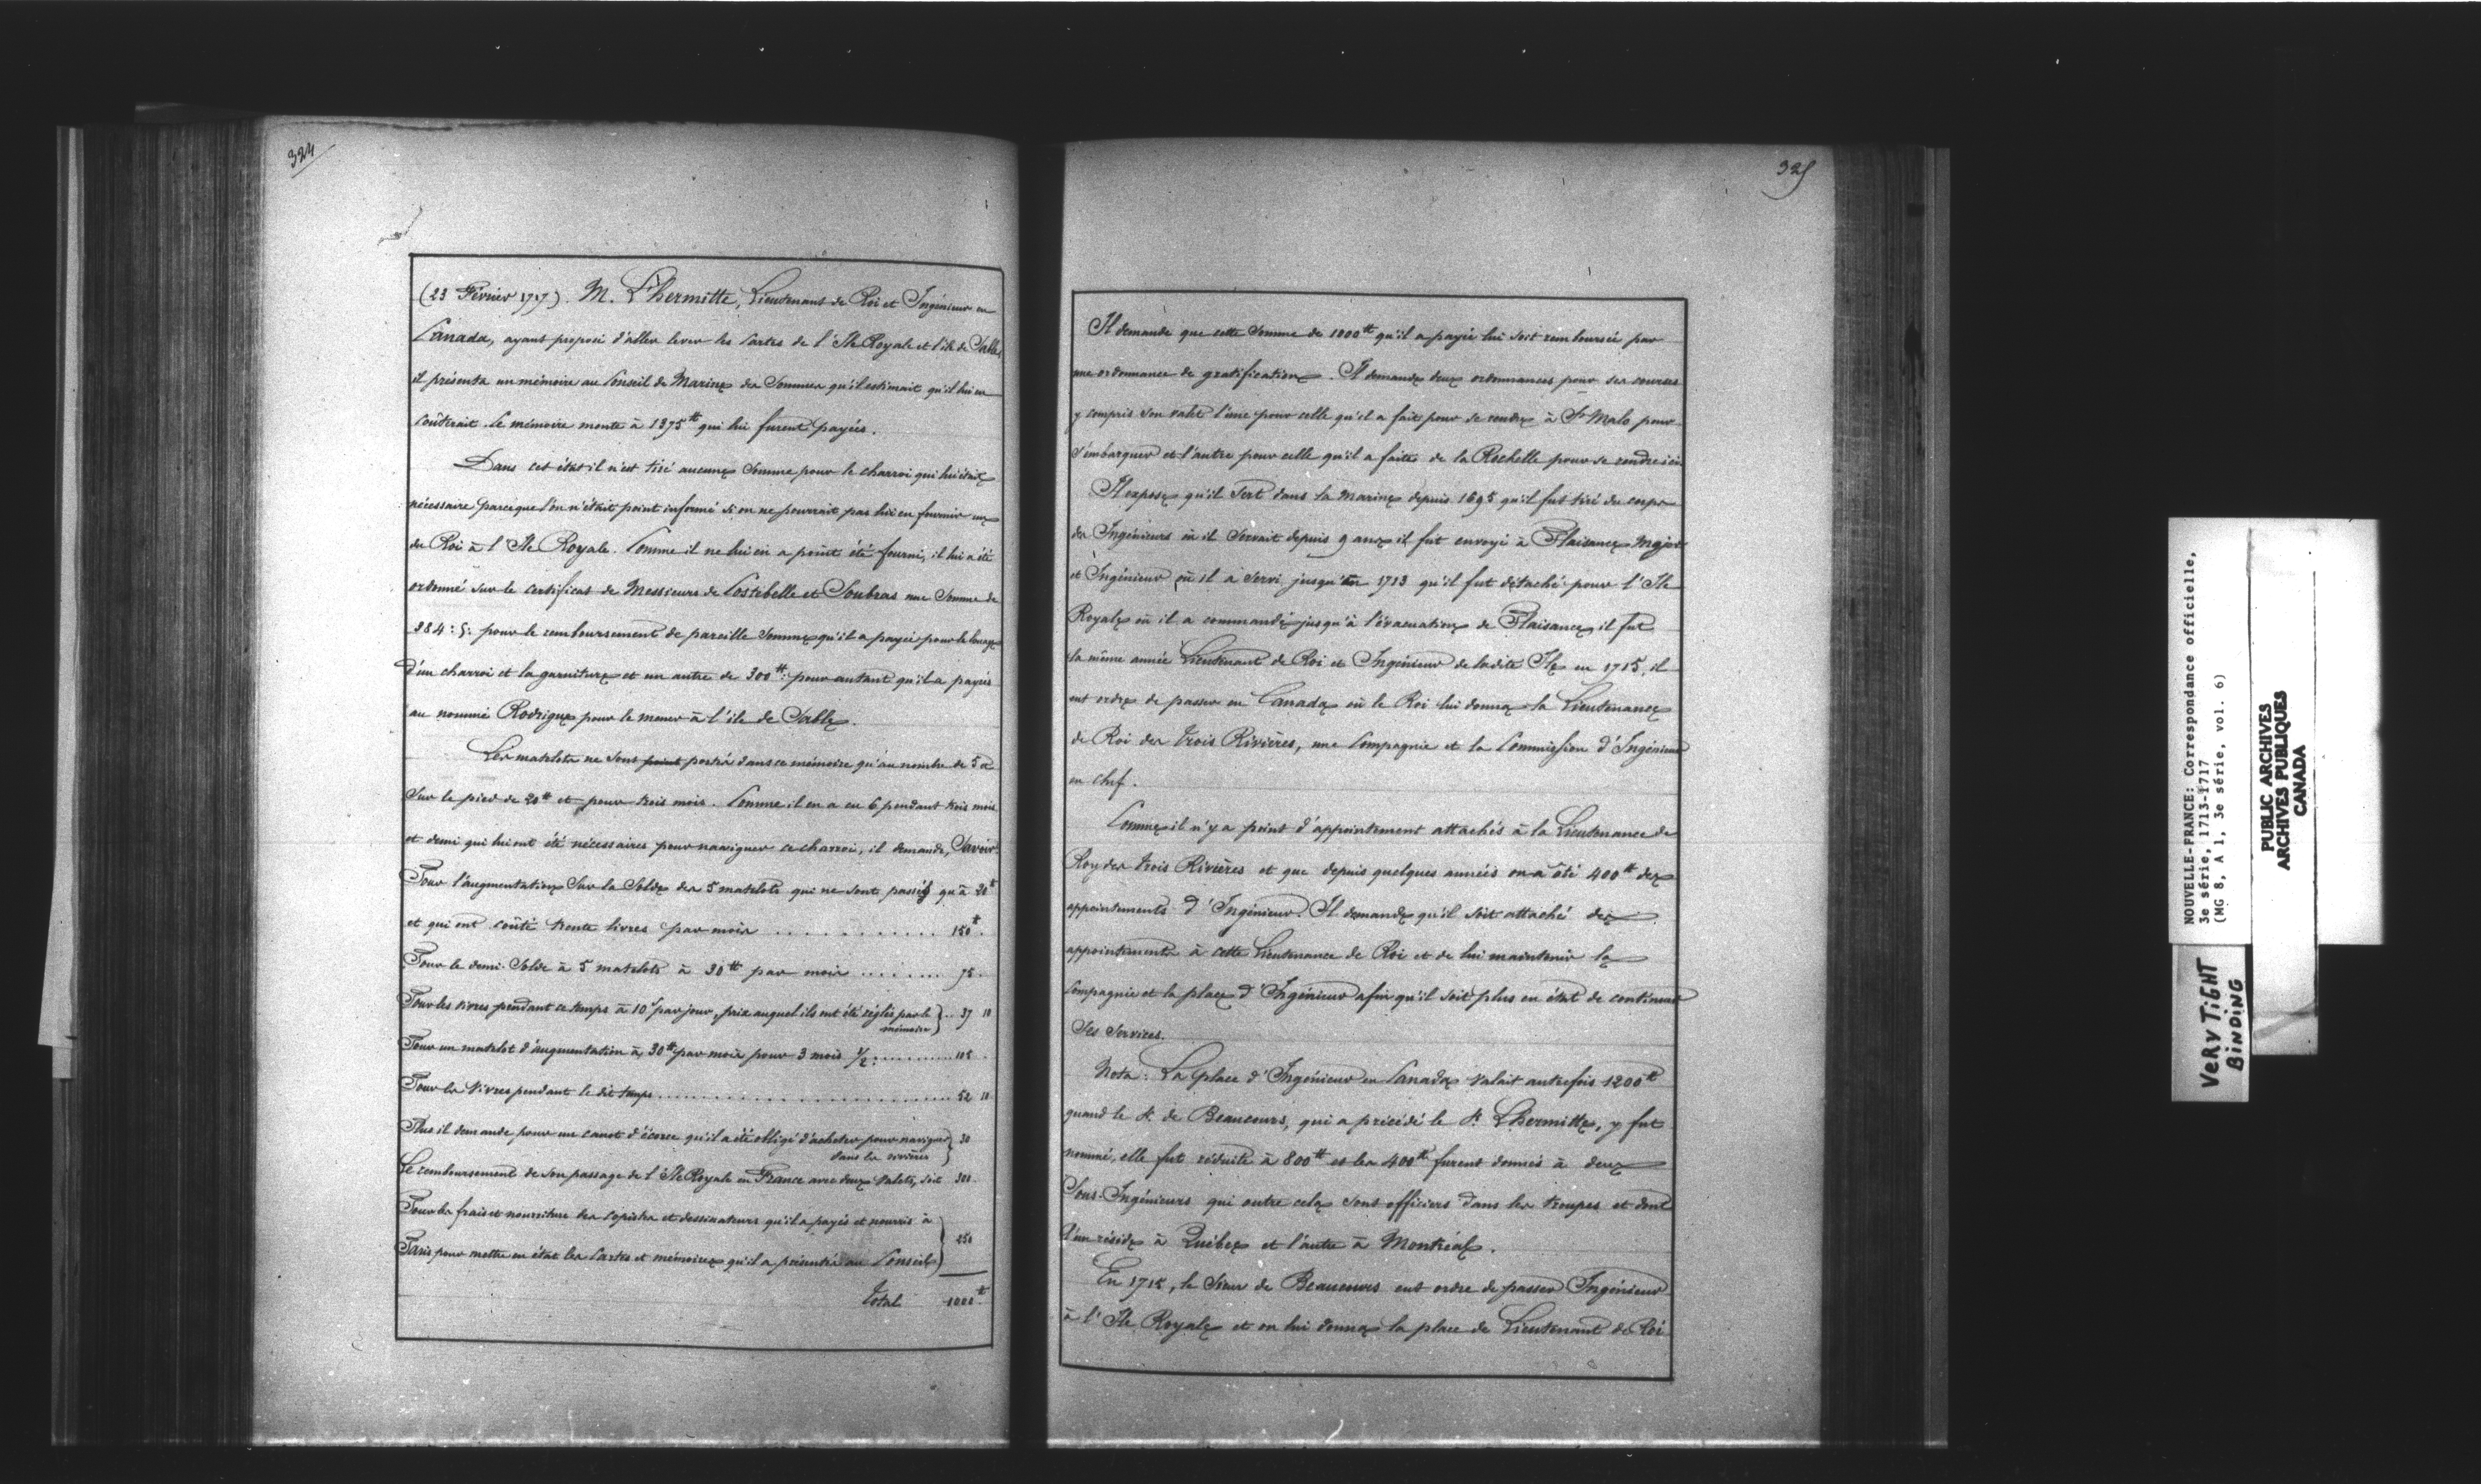 324
(23 Février 1717). M. L'hermitte, Lieutenant de Roi et Ingénieur en
Canada, ayant proposé d'aller lever les Cartes de l'Ile Royale et l'île de Sable,
il présenta un mémoire au Conseil de Marine des Sommes qu'il estimait qu'il lui en
Coûterait. Le mémoire monte à 1375 ₶ qui lui furent payées.
Dans cet état il n'est tiré aucune Somme pour le charroi qui lui était
nécessaire parceque l'on n'était point informé si on ne pourrait pas lui en fournir un
du Roi à l'Ile Royale. Comme il ne lui en a point été fourni, il lui a été
ordonné sur le certificat de Messieurs de Costebelle et Soubras une Somme de
384 : 5 : pour le remboursement de pareille Somme qu'il a payée pour le louage
d'un charroi et la garniture et un autre de 300 ₶ : pour autant qu'il a payés
au nommé Rodrigue pour le mener à l'île de Sable.
Les matelots ne sont point portés dans ce mémoire qu'au nombre de 5 a
Sur le pied de 20 ₶ et pour trois mois. Comme il en a eu 6 pendant trois mois
et demi qui lui ont été nécessaires pour naviguer ce charroi, il demande, Savoir.
Pour l'augmentation Sur la Solde des 5 matelots qui ne sont passés qu'à 20 ₶
et qui ont coûté trente livres par mois . . . . . . . . . . . . 150 ₶.
Pour le demi-Solde à 5 matelots à 30 ₶ par mois . . . . . . . 75.
Pour les vivres pendant ce temps à 10 s par jour, prix auquel ils ont été réglés par le mémoire } . . 37 10
Pour un matelot d'augmentation à 30 ₶ par mois pour 3 mois 1/2 : . . . . . . . . . . 105 .
Pour les Vivres pendant le dit temps . . . . . . . . . . . . . . . . . . . . . . . . 52 10
Plus il demande pour un canot d'écorce qu'il a été obligé d'acheter pour naviguer dans les rivières } 30
Le remboursement de son passage de l'Ile Royale en France avec deux Valets, soit 300.
Pour les frais et nourriture des Copistes et dessinateurs qu'il a payés et nourris à
Paris pour mettre en état les Cartes et mémoires qu'il a présentés au Conseil } 250
Total 1000 ₶
325
Il demande que cette Somme de 1000 ₶ qu'il a payée lui soit remboursée par
une ordonnance de gratification. Il demande deux ordonnances pour ses courses
y compris son valet l'une pour celle qu'il a fait pour se rendre à St Malo pour
s'embarquer et l'autre pour celle qu'il a faite de la Rochelle pour se rendre ici
Il expose qu'il Sert dans la Marine depuis 1695 qu'il fut tiré du corps
des Ingénieurs où il Servait depuis 9 ans il fut envoyé à Plaisance Major
et Ingénieur où il a Servi jusqu'en 1713 qu'il fut détaché pour l'Ile
Royale où il a commandé jusqu'à l'évacuation de Plaisance, il fut
la même année Lieutenant de Roi et Ingénieur de ladite Ile en 1715, il
eut ordre de passer en Canada où le Roi lui donna la Lieutenance
de Roi des trois Rivières, une Compagnie et la Commission d'Ingénieur
en chef.
Comme il n'y a point d'appointement attachés à la Lieutenance de
Roy des trois Rivières et que depuis quelques années on a ôté 400 ₶ des
appointements d'Ingénieur. Il demande qu'il soit attaché des
appointements à cette Lieutenance de Roi et de lui maintenir la
Compagnie et la place d'Ingénieur afin qu'il soit plus en état de continuer
Ses Services.
Nota : La place d'Ingénieur en Canada Valait autrefois 1200 ₶
quand le Sr. de Beaucours, qui a précédé le Sr. L'hermitte, y fut
nommé, elle fut réduite à 800 ₶ et les 400 ₶ furent donnés à deux
Sous-Ingénieurs qui outre cela sont officiers dans les troupes et dont
l'un réside à Québec et l'autre à Montréal.
En 1715, le Sieur de Beaucours eut ordre de passer Ingénieur
à l'Ile Royale et on lui donna la place de Lieutenant de Roi
NOUVELLE-FRANCE: Correspondance officielle,
3e série, 1713-1717
(MG 8, A 1, 3e série, vol. 6)
PUBLIC ARCHIVES
ARCHIVES PUBLIQUES
CANADA
VERY TIGHT
BINDING